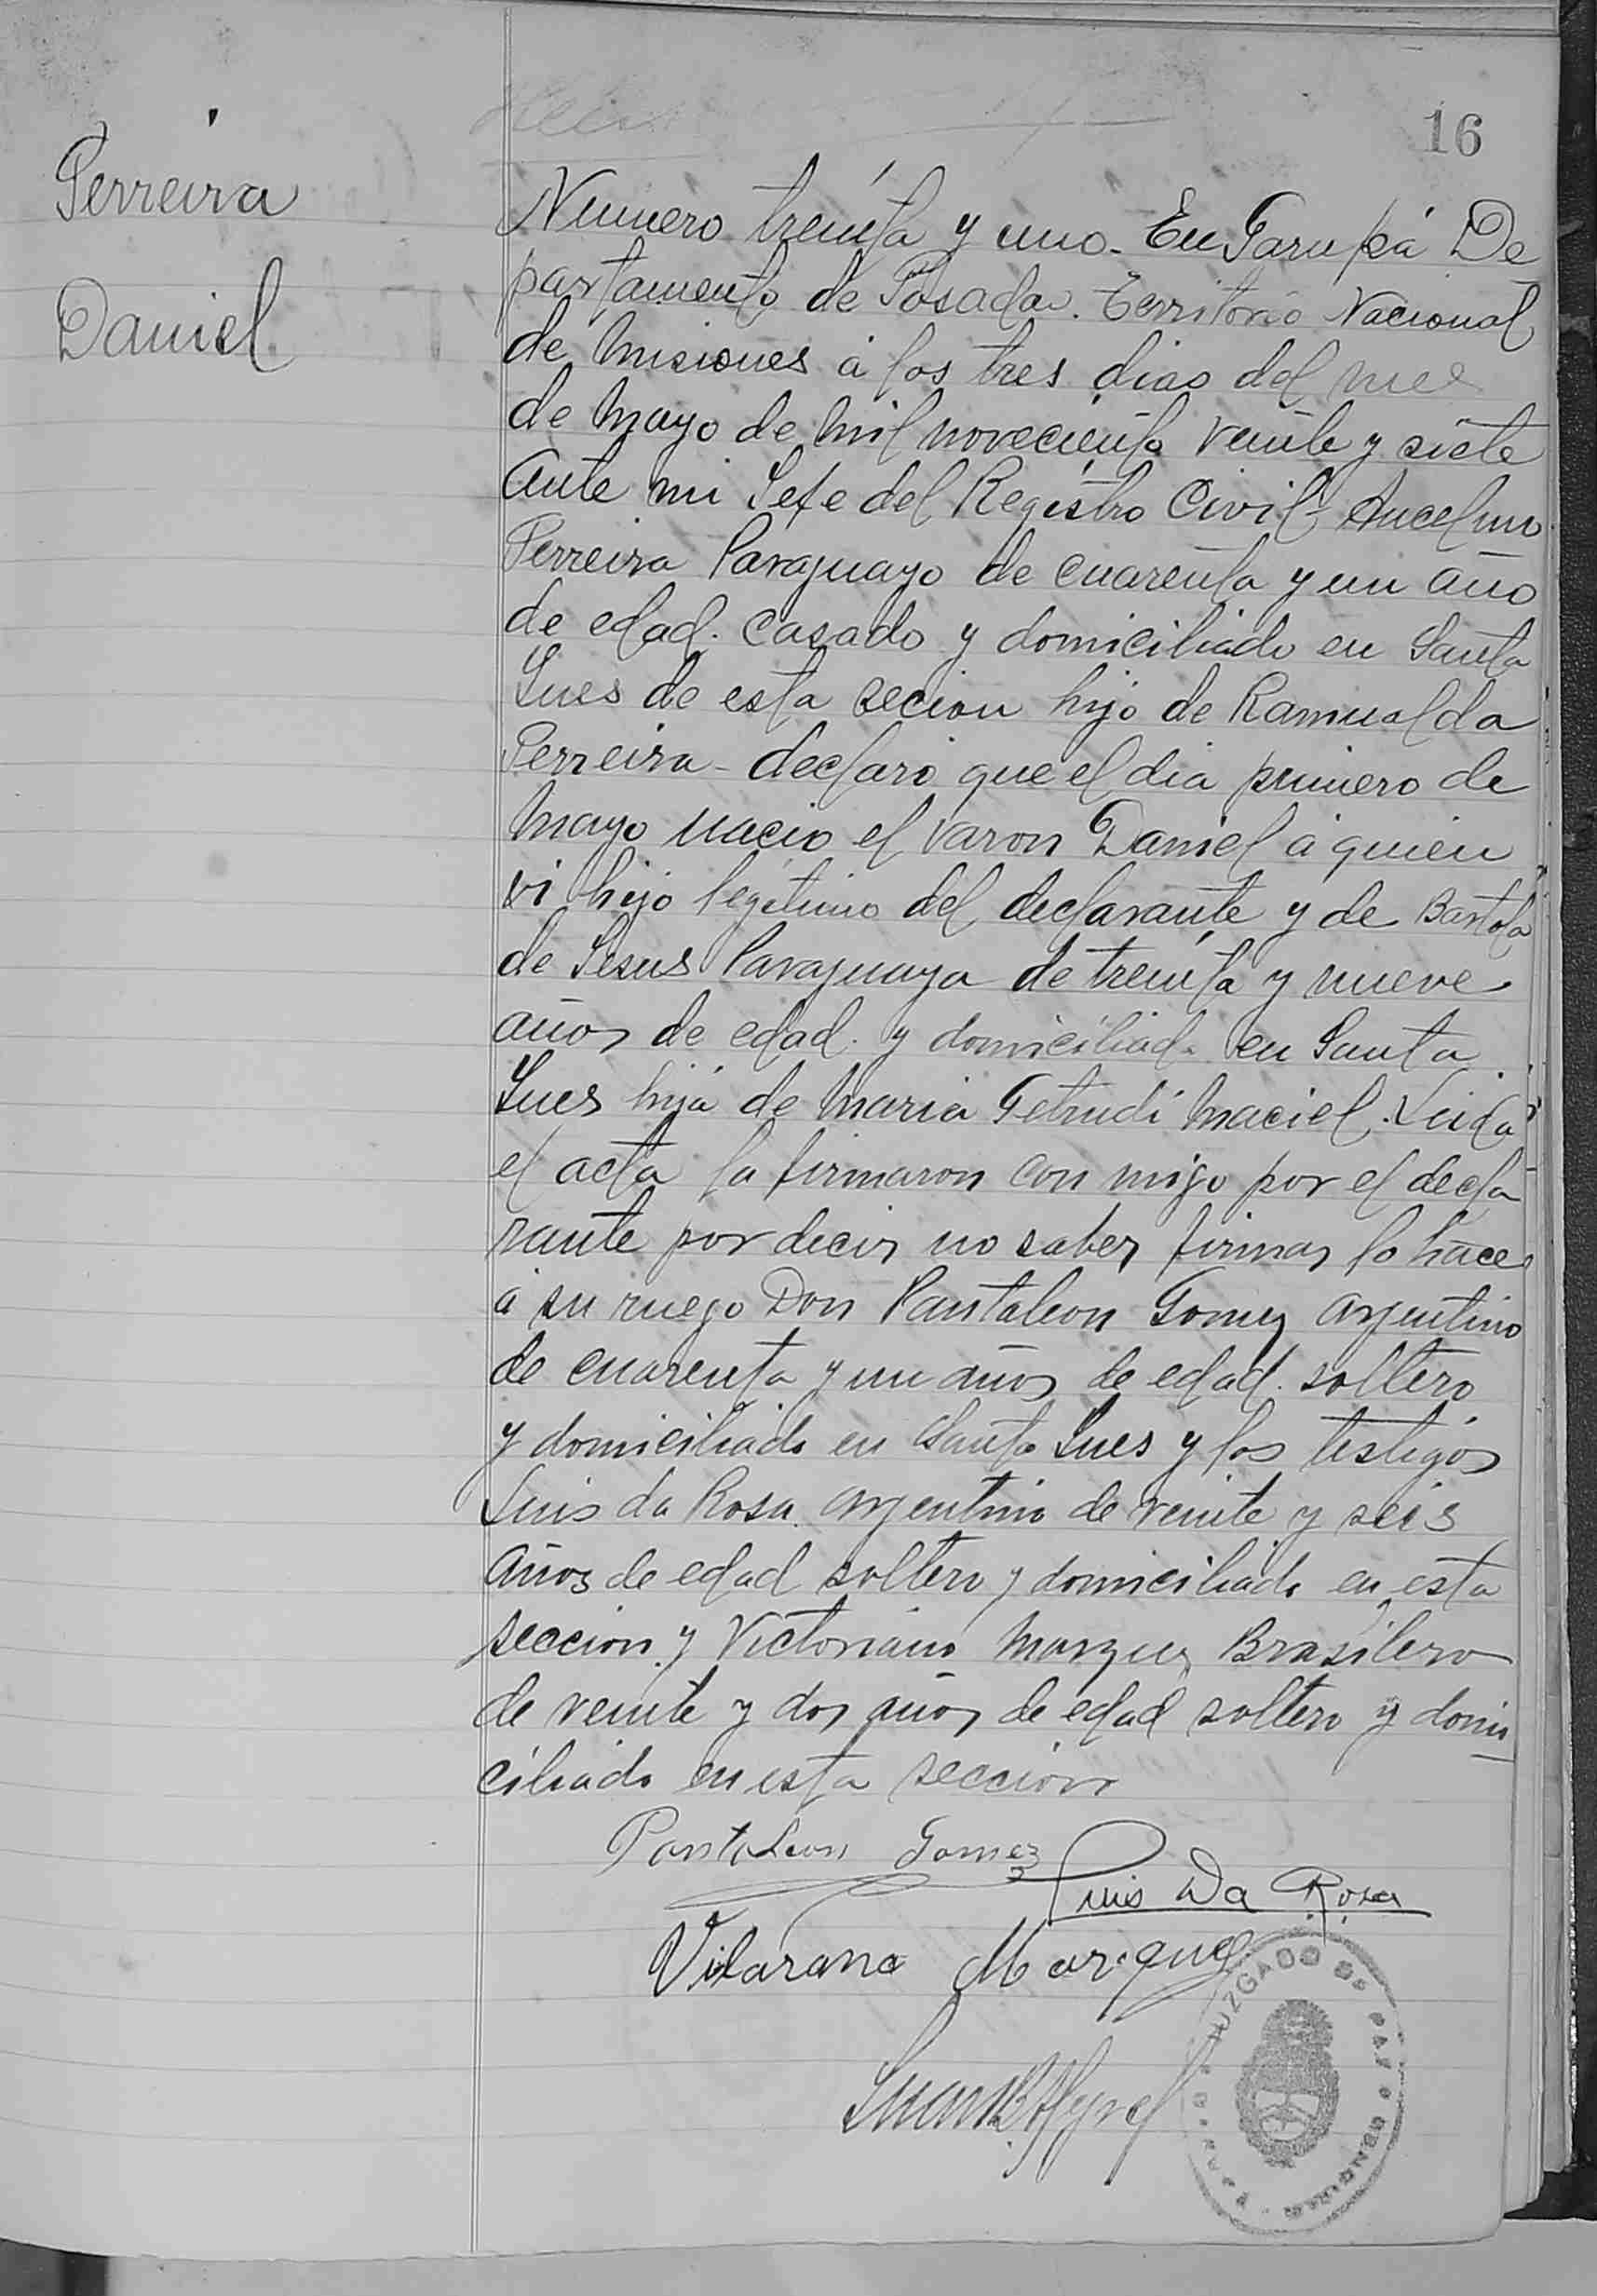 16
Perreira
Daniel
Numero treinta y uno. En Garupá De
partamento de Posada. Territorio Nacional
de Misiones á los tres dias del mes
de Mayo de mil novecienta veinte y siete
Ante mi Jefe del Registro Civil Ancelmo
Perreira Paraguayo de cuarenta y un año
de edad. casado y domiciliado en Santa
Ines de esta secion hijo de Ramualda
Perreira - declaró que el dia primero de
Mayo nacio el varon Daniel á quien
vi hijo legitimo del declarante y de Bartola
de Jesus Paraguaya de treinta y nueve
años de edad. y domiciliada en Santa
Ines hija de Maria Getrudi Maciel. Leida
el acta la firmaron con migo por el decla
rante por decir no saber firmar lo hace
á su ruego Don Pantaleon Gomez argentino
de cuarenta y un años de edad. soltero
y domiciliado en Santa Ines y los testigos
Luis da Rosa argentino de veinte y seis
años de edad soltero y domiciliado en esta
seccion y Victoriano Marquez Brasilero
de veinte y dos años de edad soltero y domi
ciliado en esta seccion
Pantaleon Gomez
Luis Da Rosa
Marque
JUZGADO DE PAZ